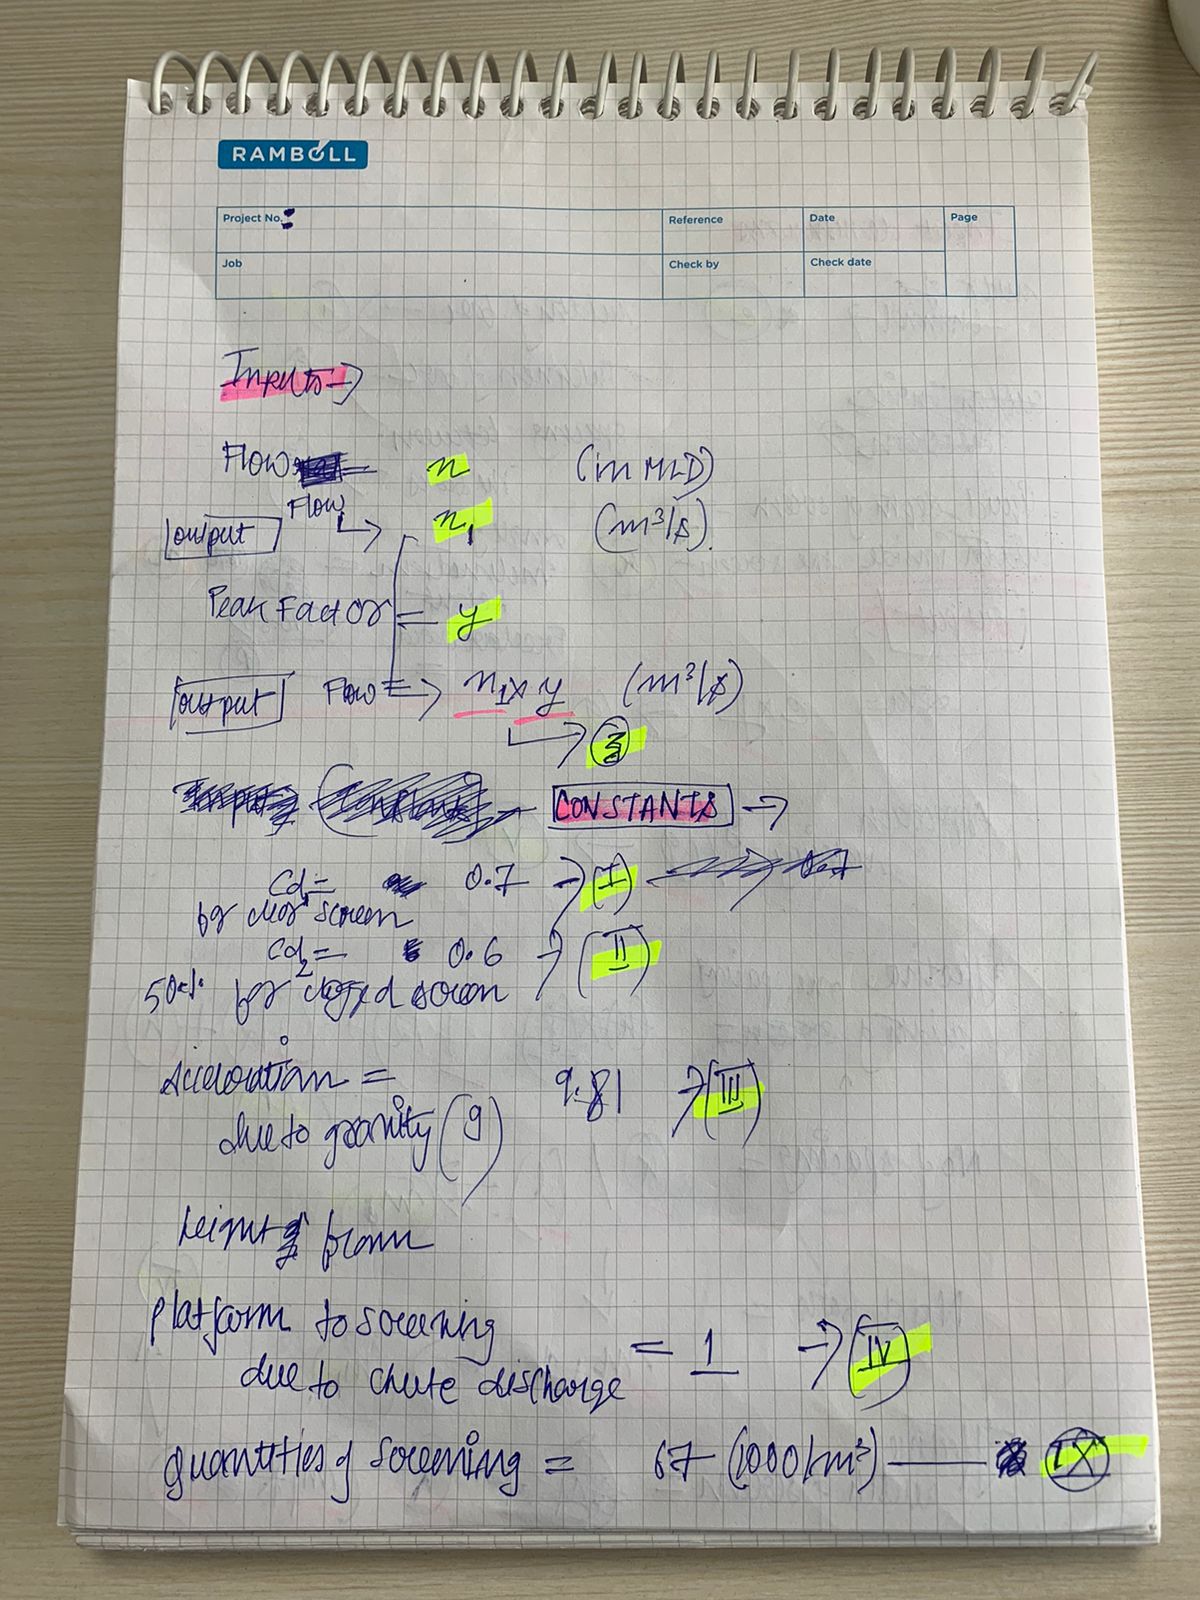 RAMBOLL
Project No. Reference Date Page
Job Check by Check date
Inputs →
Flow = n (in MLD)
Flow
output → n1 (m³/s).
Peak Factor = y
output Flow = → n1 x y (m³/s)
→ 3
CONSTANTS →
Cd1 = 0.7 → (I)
for clear screen
Cd2 = 0.6 → (II)
50% for clogged screen
Acceleration = 9.81 → (III)
due to gravity (g)
height from
platform to screening
due to chute discharge = 1 → (IV)
quantities of screening = 67 (1000/m³) — IX